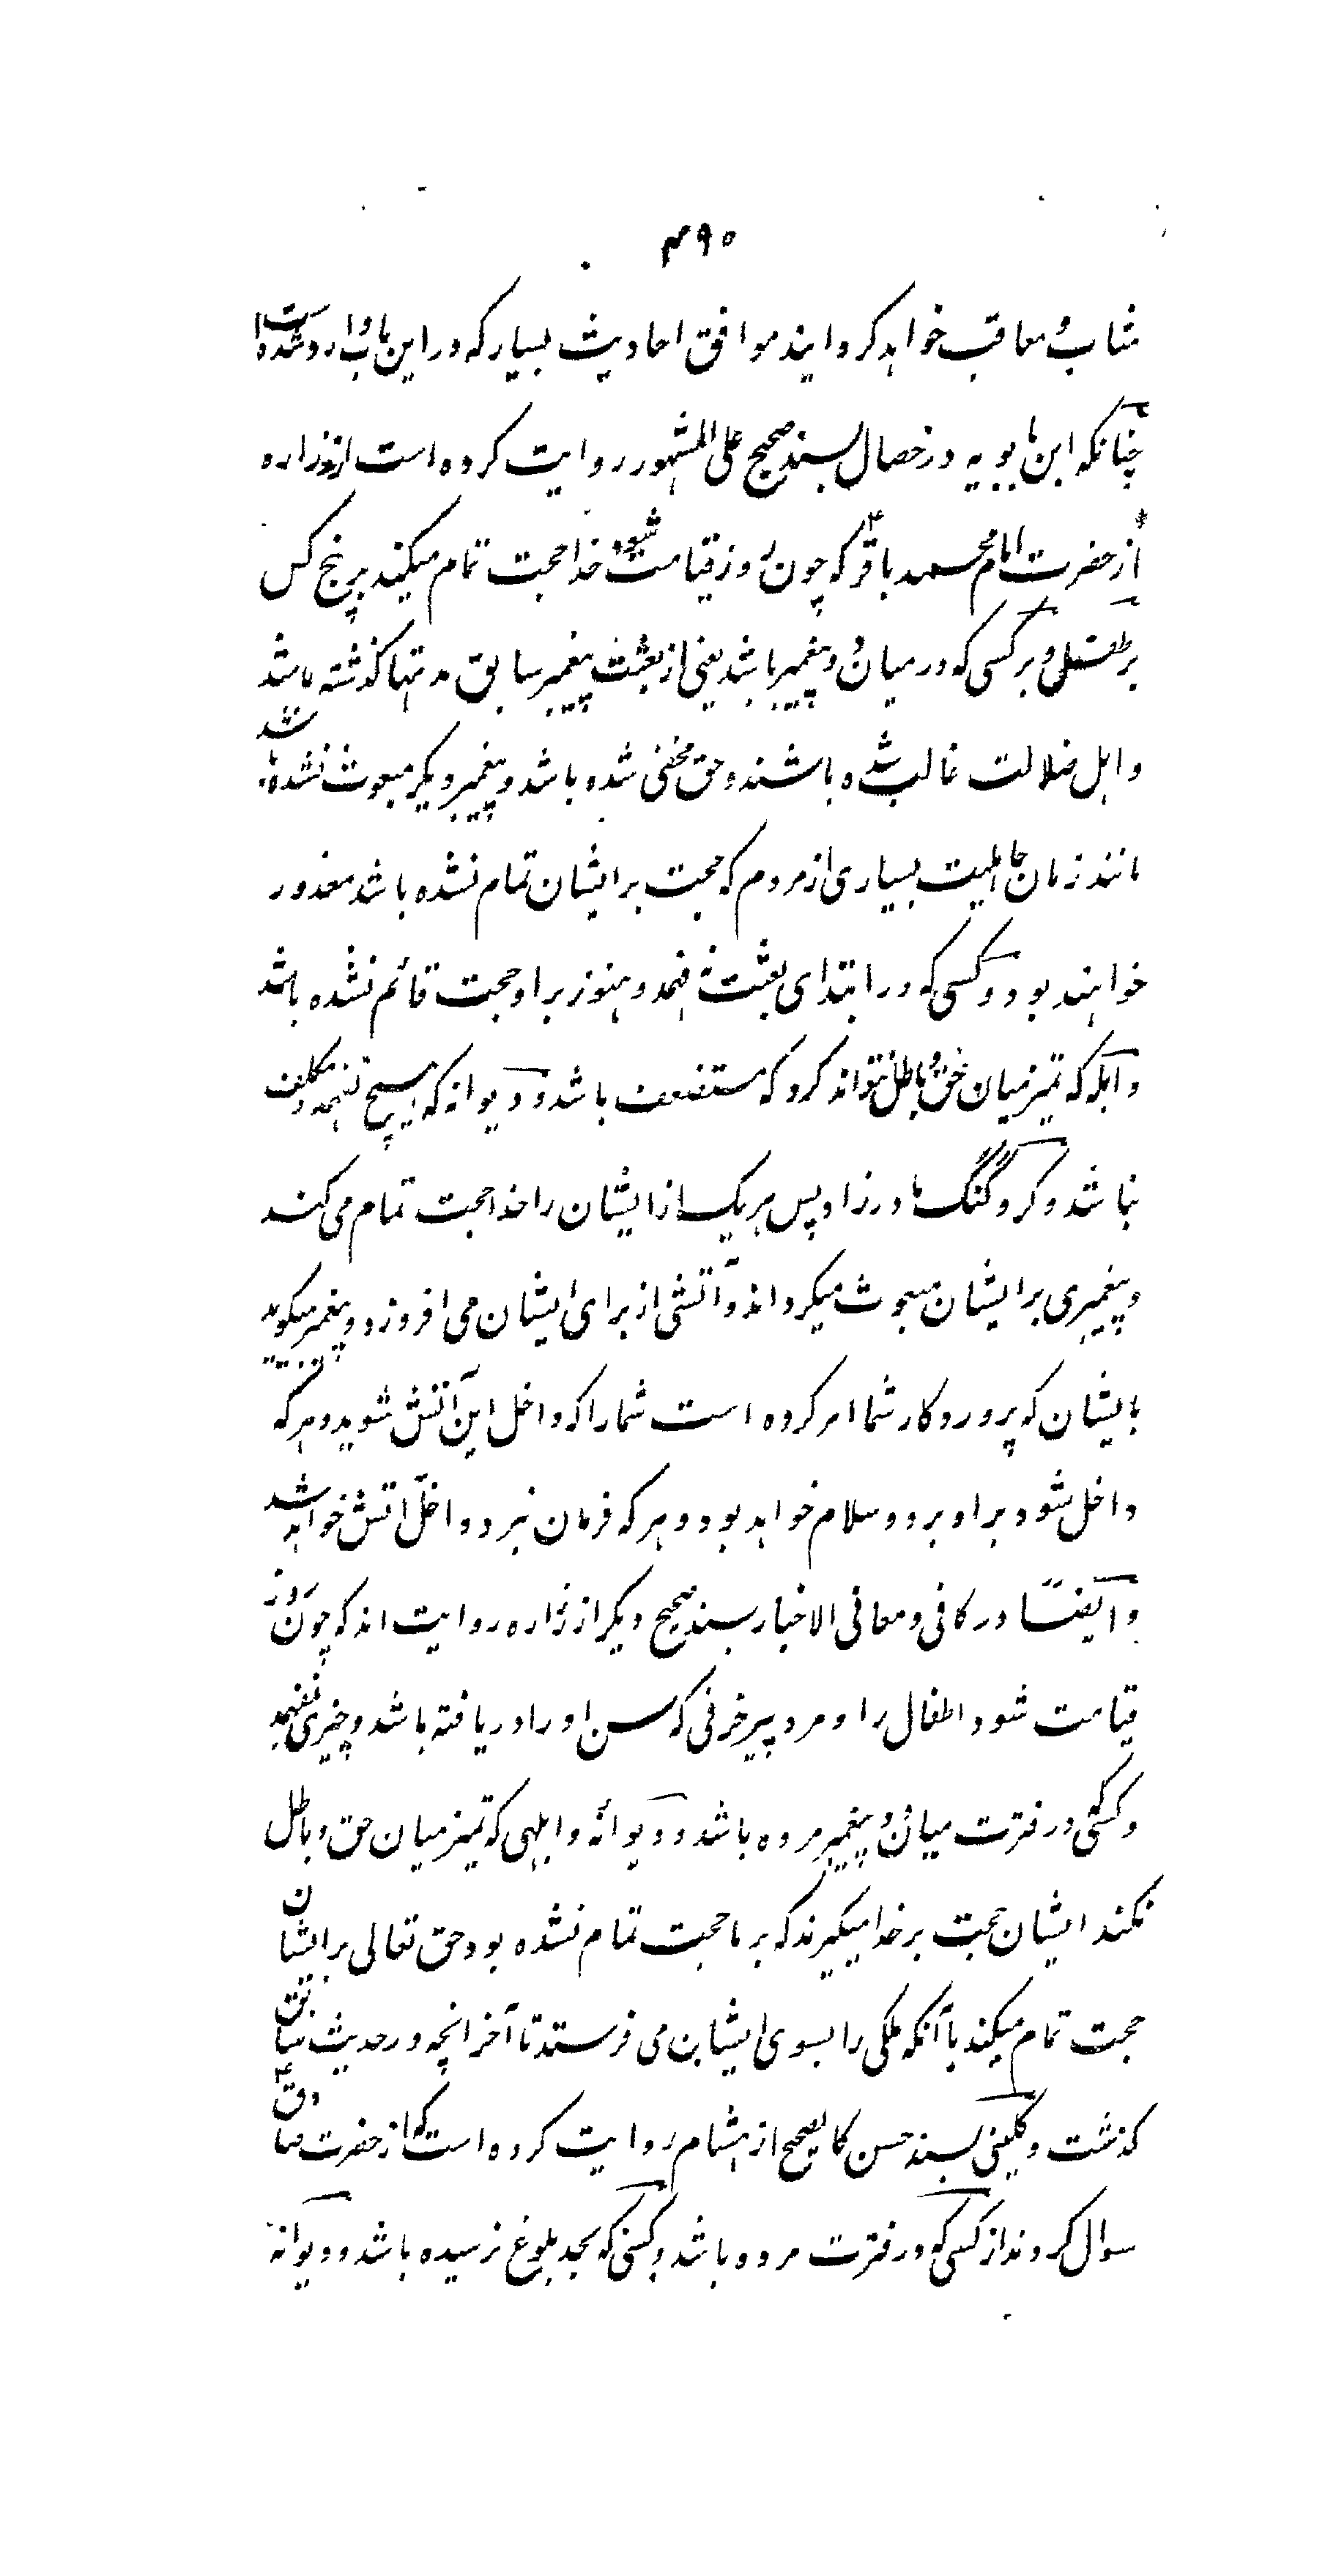 ۴۹۵
مثاب و معاقب خواهد گردانید موافق احادیث بسیار که در این باب وارد شده است
چنانکه ابن بابویه در خصال بسند صحیح علی المشهور روایت کرده است از زراره
از حضرت امام محمد باقر ع که چون روز قیامت شود خدا حجت تمام میکند بر پنج کس
بر طفلی و بر کسی که در میان دو پیغمبر باشد یعنی از بعثت پیغمبر سابق مدتها گذشته باشد
و اهل ضلالت غالب شده باشند و حق مخفی شده باشد و پیغمبر دیگر مبعوث نشده باشد
مانند زمان جاهلیت بسیاری از مردم که حجت بر ایشان تمام نشده باشد معذور
خواهند بود و کسی که در ابتدای بعثت نفهمد و هنوز بر او حجت قائم نشده باشد
و ابله که تمیز میان حق و باطل نتواند کرد که مستضعف باشد و دیوانه که هیچ نفهمد و مکلف
نباشد و کر و گنگ مادرزاد پس هریک از ایشان را خدا حجت تمام می کند
و پیغمبری بر ایشان مبعوث میگرداند و آتشی از برای ایشان می افروزد و پیغمبر میگوید
بایشان که پروردگار شما امر کرده است شما را که داخل این آتش شوید و هر که
داخل شود بر او برد و سلام خواهد بود و هر که فرمان نبرد داخل آتش خواهد شد
و ایضًا در کافی و معانی الاخبار بسند صحیح دیگر از زراره روایت اند که چون روز
قیامت شود اطفال را و مرد پیر خرفی که سن او را دریافته باشد و چیزی نفهمد
و کسی در فترت میان دو پیغمبر مرده باشد و دیوانه و ابلهی که تمیز میان حق و باطل
نکند ایشان حجت بر خدا میگیرند که بر ما حجت تمام نشده بود حق تعالی بر ایشان
حجت تمام میکند بآنکه ملکی را بسوی ایشان می فرستد تا آخر انچه در حدیث سابق
گذشت و کلینی بسند حسن کالصحیح از هشام روایت کرده است که از حضرت صادق ع
سوال کردند از کسی که در فترت مرده باشد و کسی که بحد بلوغ نرسیده باشد و دیوانه